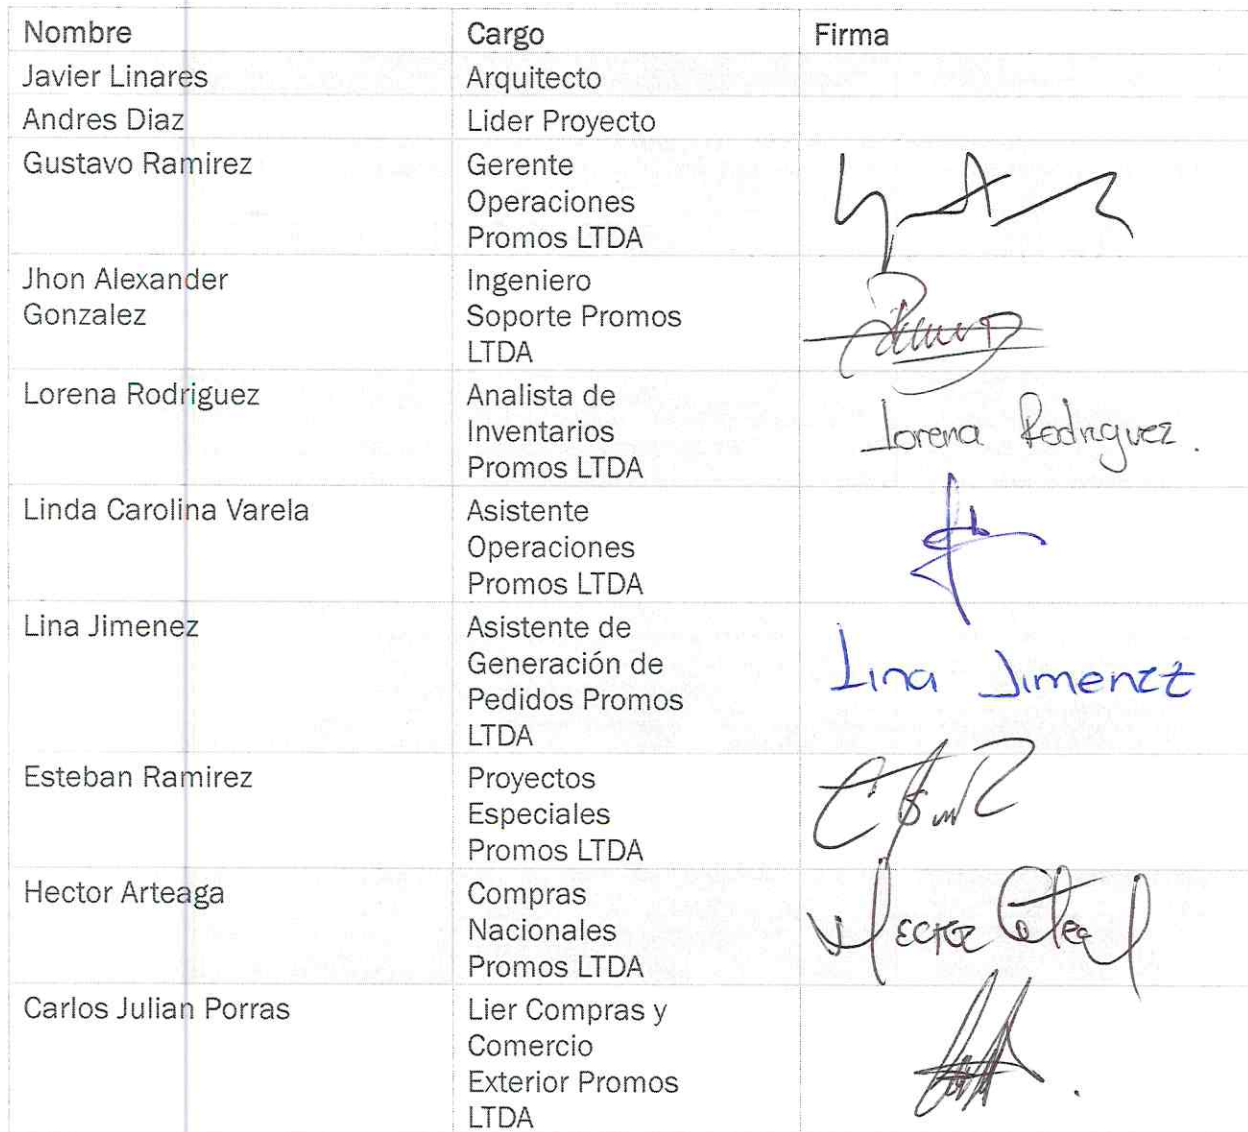 Nombre Cargo Firma
Javier Linares Arquitecto
Andres Diaz Lider Proyecto
Gustavo Ramirez Gerente
Operaciones
Promos LTDA
Jhon Alexander Ingeniero
Gonzalez Soporte Promos
LTDA
Lorena Rodriguez Analista de
Inventarios Lorena Rodriguez.
Promos LTDA
Linda Carolina Varela Asistente
Operaciones
Promos LTDA
Lina Jimenez Asistente de
Generación de Lina Jimenez
Pedidos Promos
LTDA
Esteban Ramirez Proyectos
Especiales
Promos LTDA
Hector Arteaga Compras
Nacionales
Promos LTDA
Carlos Julian Porras Lier Compras y
Comercio
Exterior Promos
LTDA